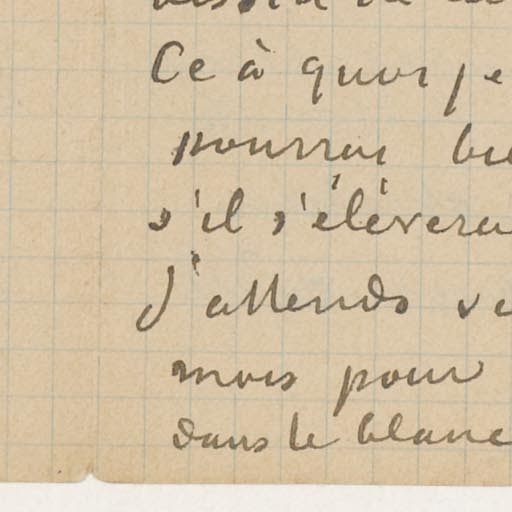 Ce à quoi je
pourrai
s'il s'élèvera
J'attends
mois pour
dans le blanc